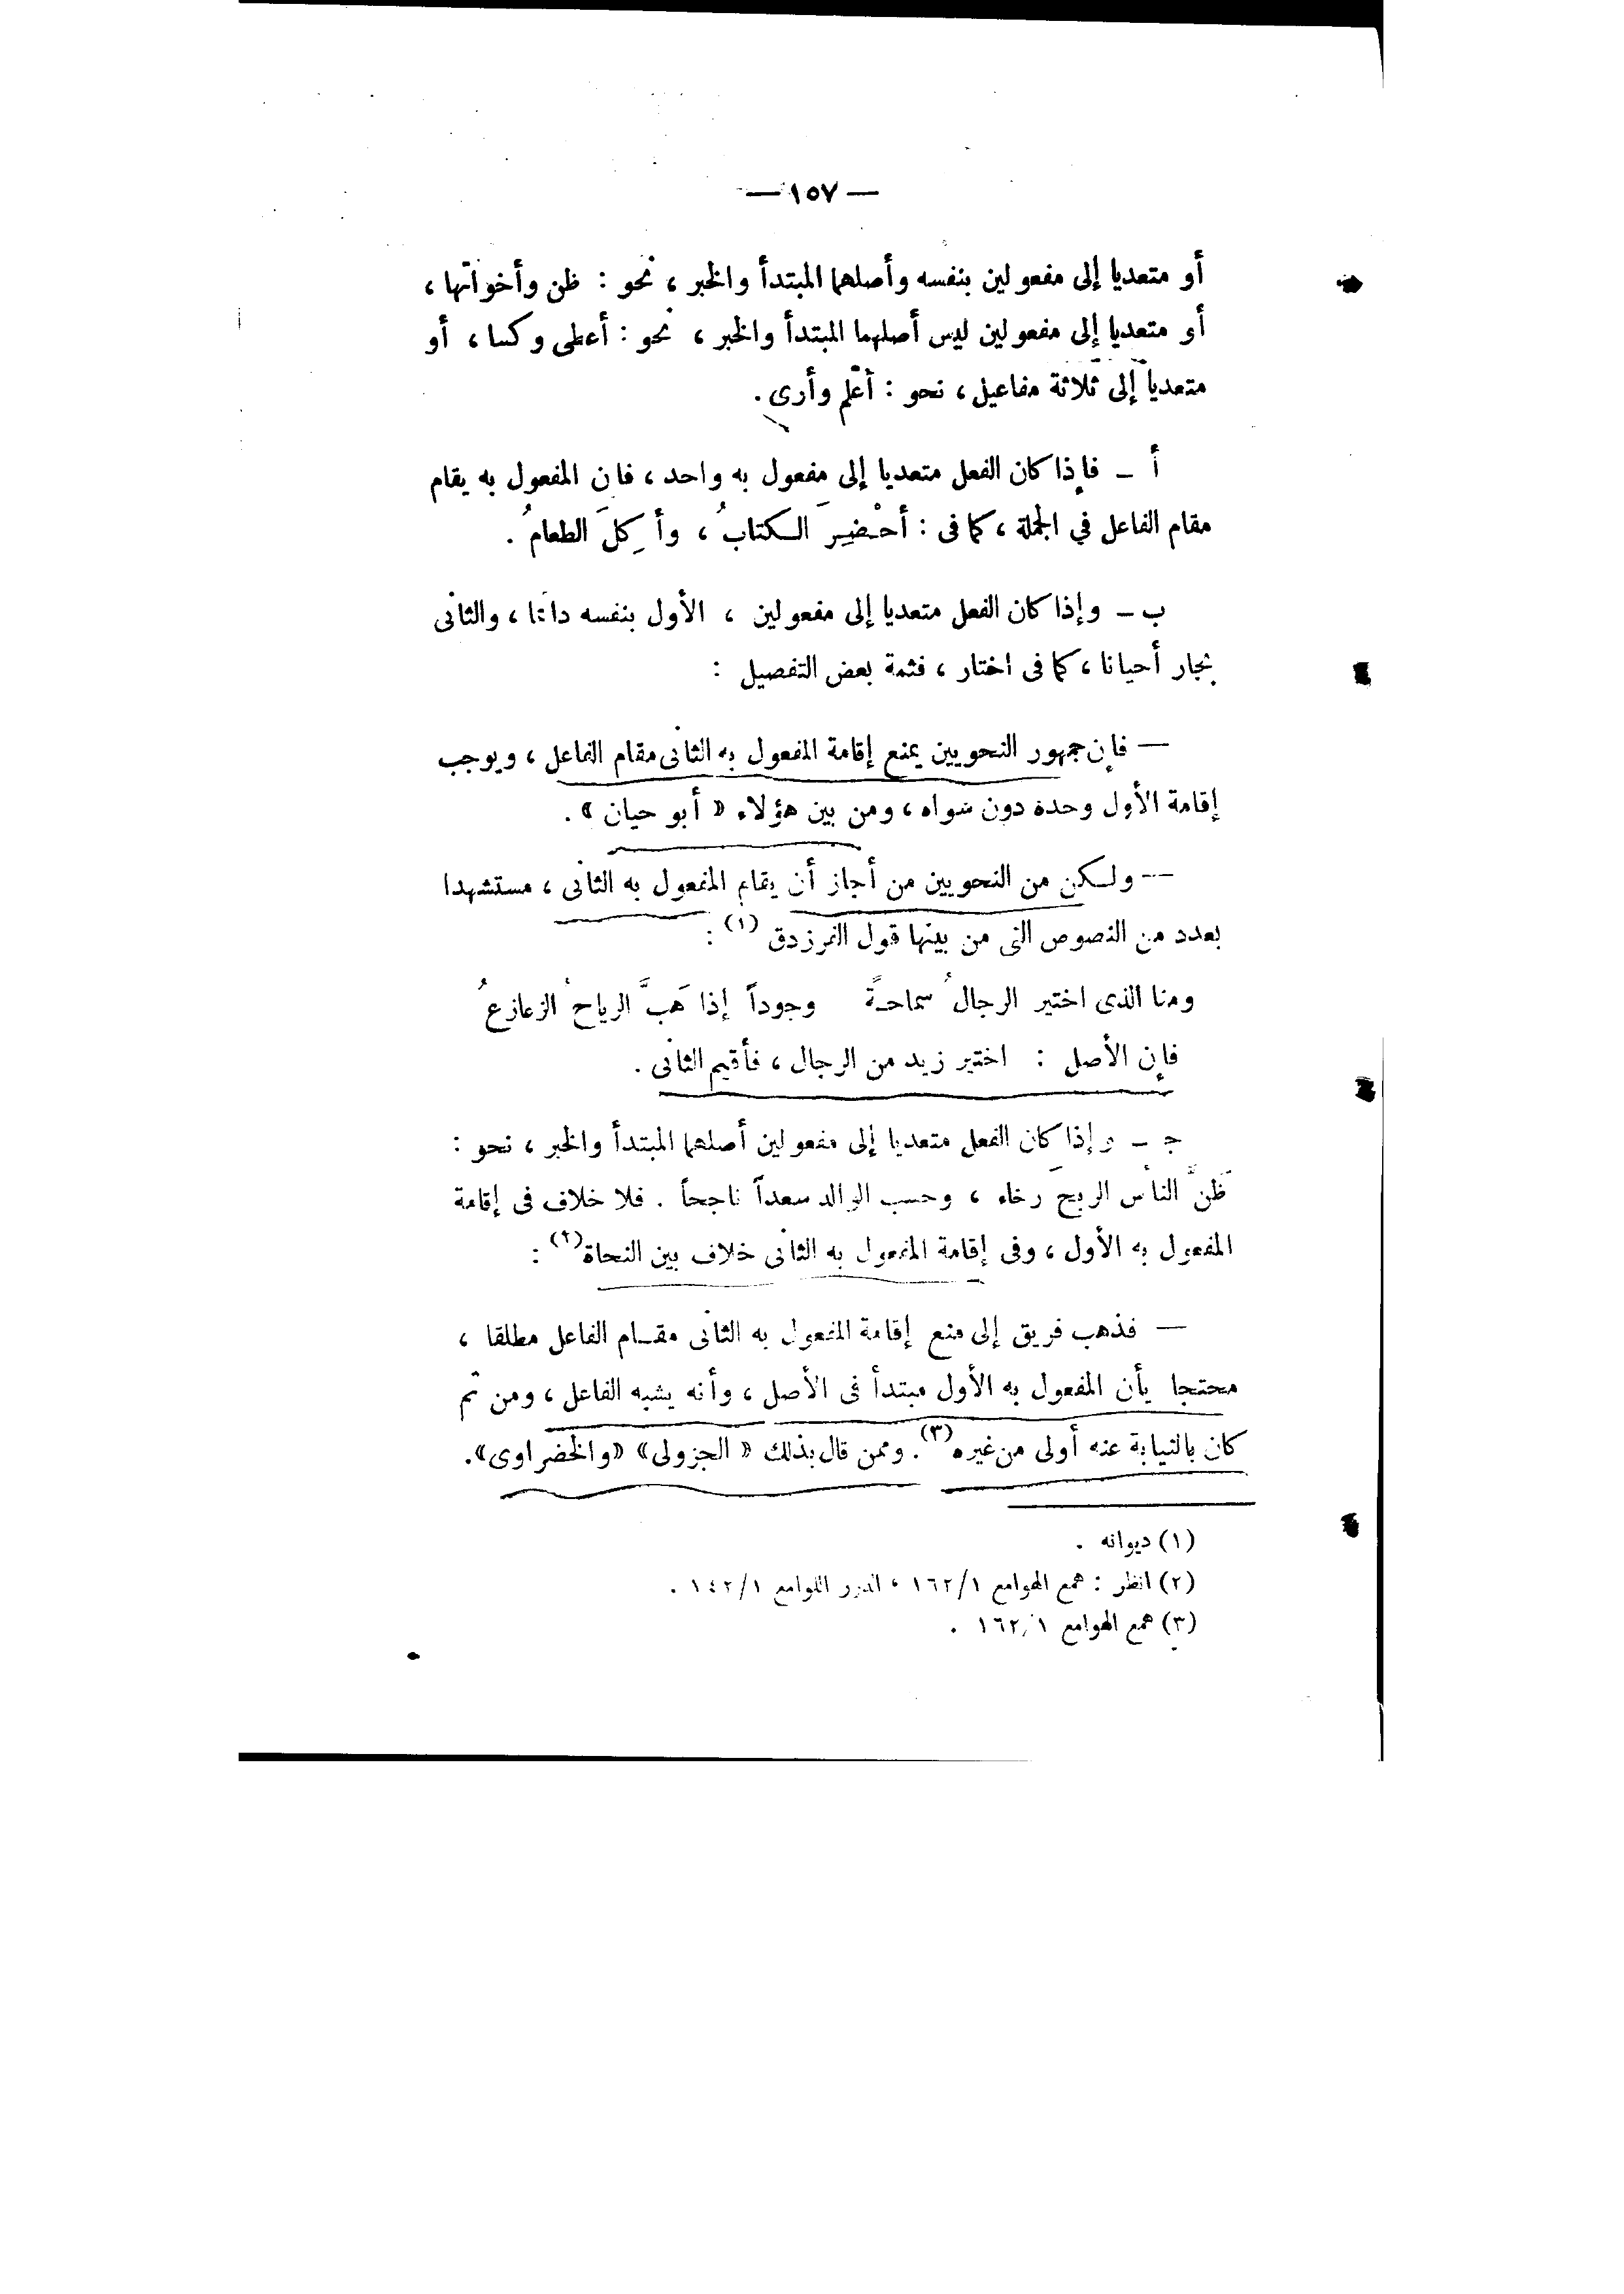 — ١٥٧ —
أو متعديا إلى مفعولين بنفسه وأصلهما المبتدأ والخبر ، نحو : ظن وأخواتها ،
أو متعديا إلى مفعولين ليس أصلهما المبتدأ والخبر ، نحو : أعطى وكسا ، أو
متعدياً إلى ثلاثة مفاعيل ، نحو : أعلم وأرى .
أ – فإذا كان الفعل متعديا إلى مفعول به واحد ، فإن المفعول به يقام
مقام الفاعل في الجملة ، كما فى : أحْضِرَ الكتابُ ، وأُكِلَ الطعامُ .
ب – وإذا كان الفعل متعديا إلى مفعولين ، الأول بنفسه دائما ، والثانى
بجار أحيانا ، كما فى اختار ، فثمة بعض التفصيل :
— فإن جمهور النحويين يمنع إقامة المفعول به الثانى مقام الفاعل ، ويوجب
إقامة الأول وحده دون سواه ، ومن بين هؤلاء « أبو حيان » .
— ولكن من النحويين من أجاز أن يقام المفعول به الثانى ، مستشهدا
بعدد من النصوص التى من بينها قول الفرزدق (١) :
ومنا الذى اختير الرجالُ سماحةً وجوداً إذا هَبَّ الرياحُ الزعازعُ
فإن الأصل : اختير زيد من الرجال ، فأقيم الثانى .
جـ – وإذا كان الفعل متعديا إلى مفعولين أصلهما المبتدأ والخبر ، نحو :
ظنَّ الناسُ الريحَ رخاء ، وحسب الوالد سعداً ناجحاً . فلا خلاف فى إقامة
المفعول به الأول ، وفى إقامة المفعول به الثانى خلاف بين النحاة (٢) :
— فذهب فريق إلى منع إقامة المفعول به الثانى مقام الفاعل مطلقا ،
محتجا بأن المفعول به الأول مبتدأ فى الأصل ، وأنه يشبه الفاعل ، ومن ثم
كان بالنيابة عنه أولى من غيره (٣) . وممن قال بذلك « الجزولى » «والخضراوى» .
(١) ديوانه .
(٢) انظر : همع الهوامع ١/ ١٦٢ ، الدرر اللوامع ١/ ١٤٢ .
(٣) همع الهوامع ١/ ١٦٢ .